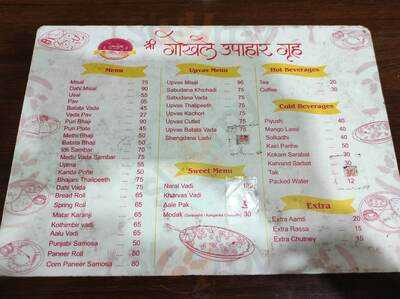 श्री गोखले उपाहार गृह
Menu
Misal 75
Dahi Misal 90
Usal 55
Pav 05
Batata Vada 45
Vada Pav 27
Puri Bhaji 90
Puri Plate 45
Methi Bhaji 50
Batata Bhaji 50
Idli Sambar 70
Medu Vada Sambar 75
Upma 55
Kanda Pohe 50
Bhajani Thalipeeth 75
Dahi Vada 75
Bread Roll 65
Spring Roll 65
Matar Karanji 65
Kothimbir vadi 65
Aalu Vadi 65
Punjabi Samosa 50
Paneer Roll 50
Corn Paneer Samosa 80
Upvas Menu
Upvas Misal 95
Sabudana Khichadi 75
Sabudana Vada 75
Upvas Thalipeeth 75
Upvas Kachori 75
Upvas Cutlet 75
Upvas Batata Vada
Shengdana Ladu
Sweet Menu
Naral Vadi
Kharvas Vadi
Aale Pak
Modak
Hot Beverages
Tea 20
Coffee 30
Cold Beverages
Piyush 40
Mango Lassi 40
Solkadhi 40
Kairi Panhe 50
Kokam Sarabat 30
Kalvand Sarbat 30
Tak
Packed Water 12
Extra
Extra Aamti 20
Extra Rassa 15
Extra Chutney 15